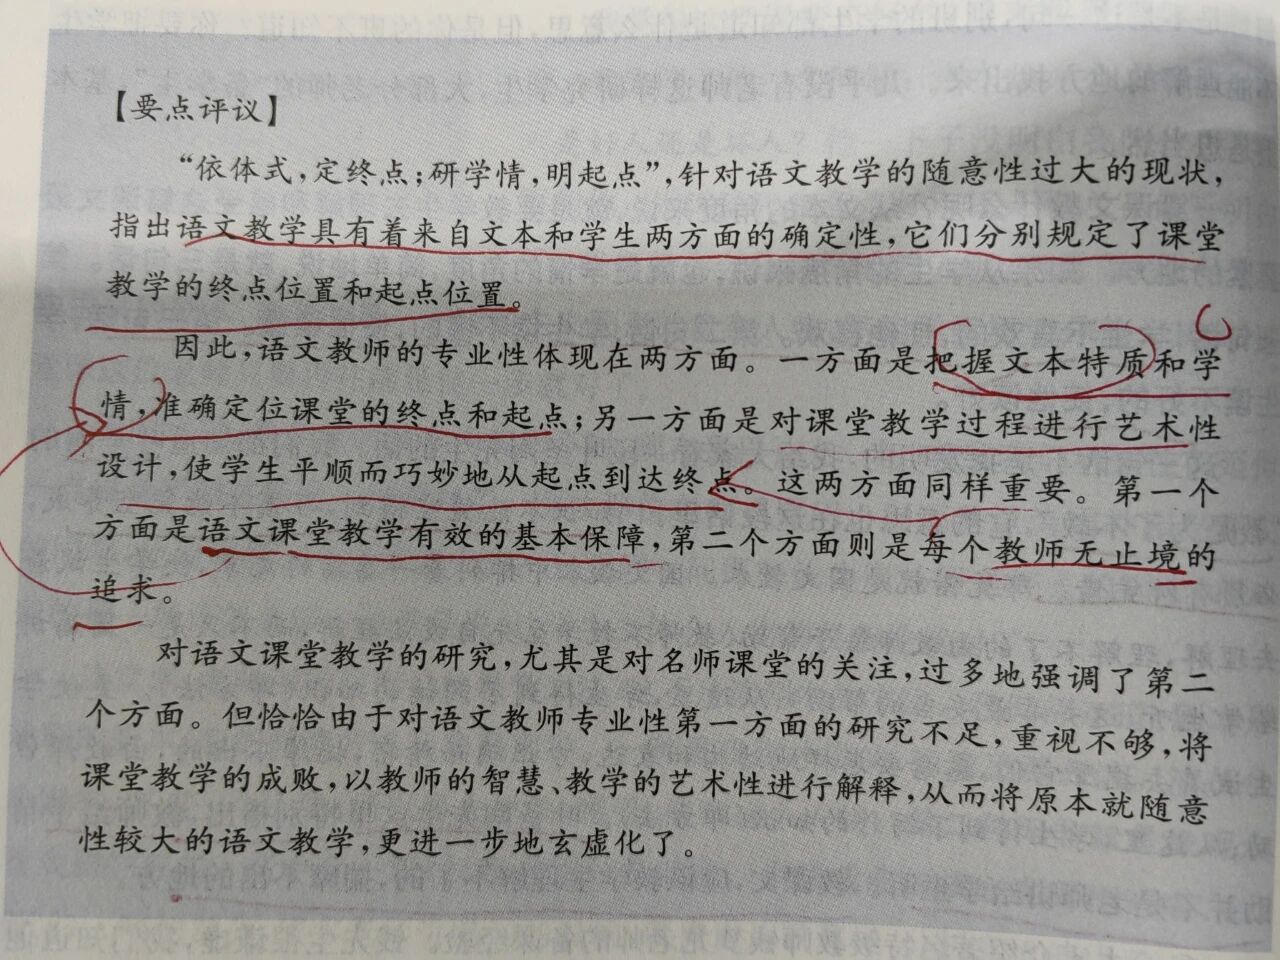 【要点评议】
“依体式，定终点；研学情，明起点”，针对语文教学的随意性过大的现状，
指出语文教学具有着来自文本和学生两方面的确定性，它们分别规定了课堂
教学的终点位置和起点位置。
因此，语文教师的专业性体现在两方面。一方面是把握文本特质和学
情，准确定位课堂的终点和起点；另一方面是对课堂教学过程进行艺术性
设计，使学生平顺而巧妙地从起点到达终点。这两方面同样重要。第一个
方面是语文课堂教学有效的基本保障，第二个方面则是每个教师无止境的
追求。
对语文课堂教学的研究，尤其是对名师课堂的关注，过多地强调了第二
个方面。但恰恰由于对语文教师专业性第一方面的研究不足，重视不够，将
课堂教学的成败，以教师的智慧、教学的艺术性进行解释，从而将原本就随意
性较大的语文教学，更进一步地玄虚化了。